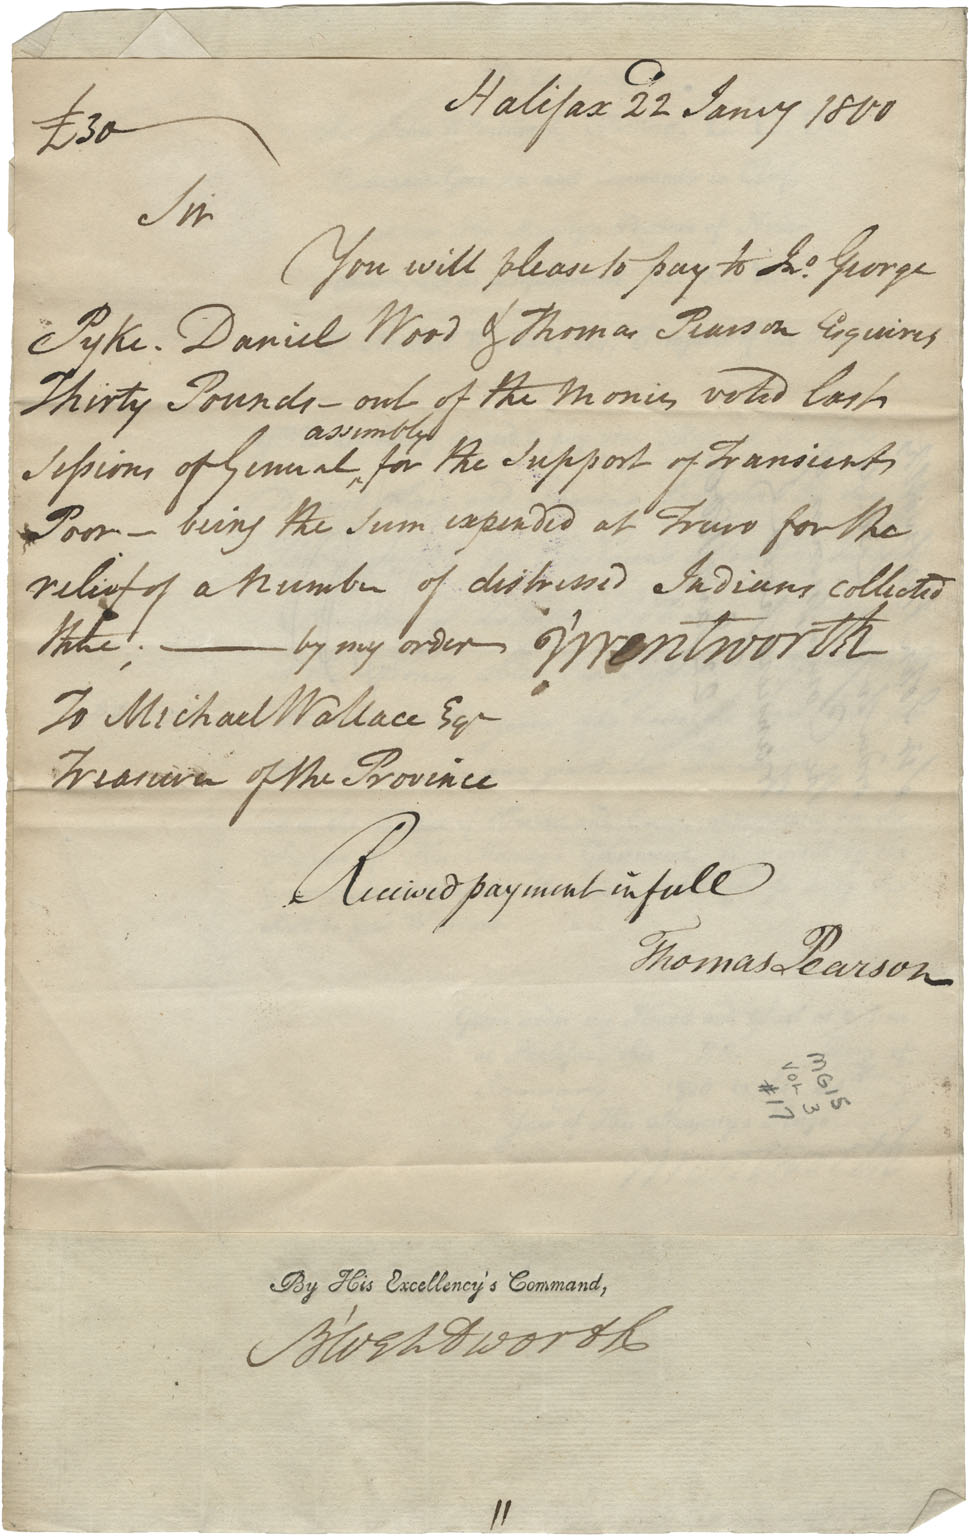 Halifax 22 Jany 1800
£30
Sir
You will please to pay to Jno. George
Pyke. Daniel Wood & Thomas Pearson Esquires
Thirty Pounds - out of the Monies voted last
assembly
Sessions of General ^ for the Support of Transient
Poor - being the Sum expended at Truro for the
relief of a Number of distressed Indians collected
there; by my order J Wentworth
To Michael Wallace Esqr
Treasurer of the Province
Received payment in full
Thomas Pearson
MG15
VOL 3
#17
By His Excellency's Command,
B Wentworth
11